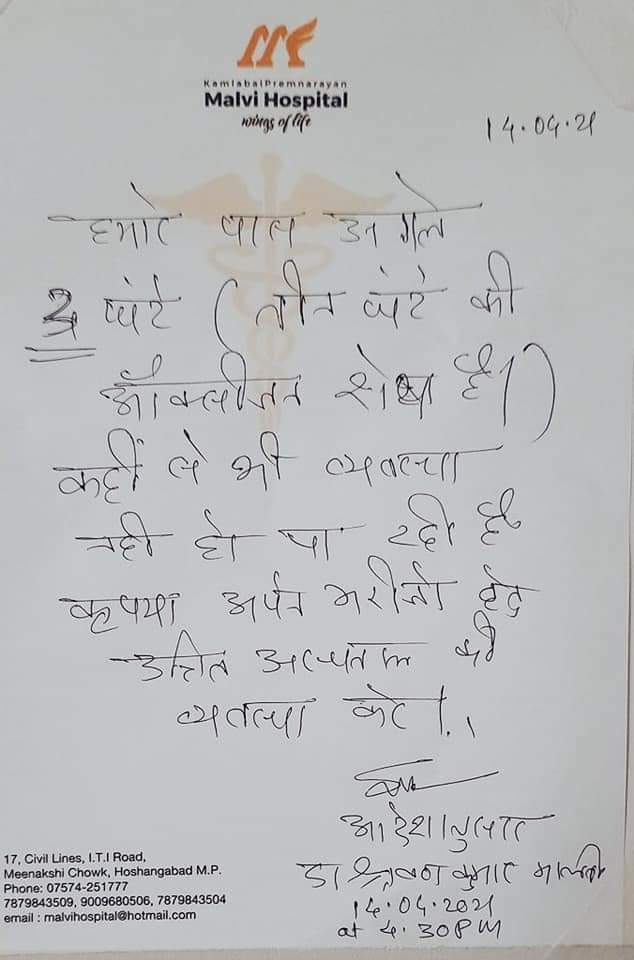 KamlabaiPremnarayan
Malvi Hospital
wings of life
14.04.21
हमारे पास अगले
3 घंटे (तीन घंटे की
ऑक्सीजन शेष है।)
कहीं से भी व्यवस्था
नही हो पा रही है
कृपया अपने मरीजो हेतु
उचित अस्पताल की
व्यवस्था करें।..
आदेशानुसार
डा श्रवण कुमार मालवी
14.04.2021
at 4.30PM
17, Civil Lines, I.T.I Road,
Meenakshi Chowk, Hoshangabad M.P.
Phone: 07574-251777
7879843509, 9009680506, 7879843504
email : malvihospital@hotmail.com